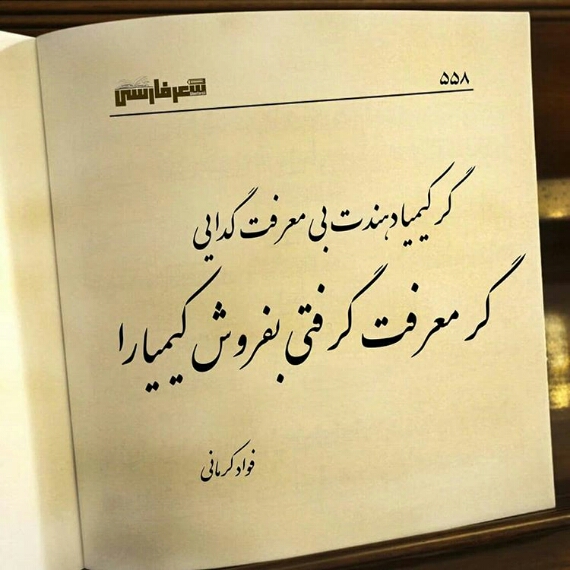 شعر فارسی ۵۵۸
گر کیمیا دهندت بی معرفت گدایی
گر معرفت گرفتی بفروش کیمیا را
فواد کرمانی